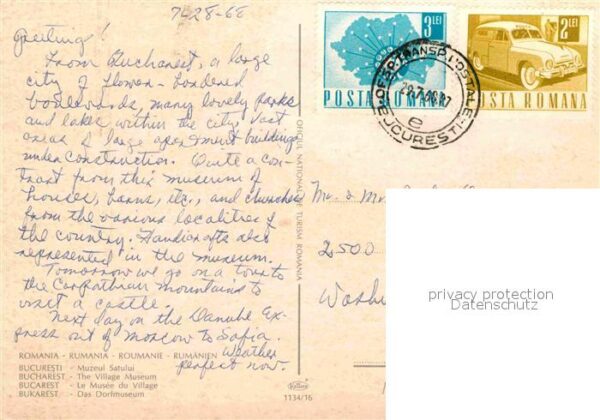 7-28-68
Greetings!
From Bucharest, a large
city of flower-bordered
boulevards, many lovely parks
and lakes within the city. Vast
areas of large apartment buildings
under construction. Quite a con-
trast from this museum of
houses, barns, etc., and churches
from the various localities of
the country. Handicrafts also
represented in the museum.
Tomorrow we go on a tour to
the Carpathian mountains to
visit a castle.
Next day on the Danube Ex-
press out of Moscow to Sofia.
Weather
perfect now.
ROMANIA - RUMANIA - ROUMANIE - RUMÄNIEN
BUCUREŞTI - Muzeul Satului
BUCHAREST - The Village Museum
BUCAREST - Le Musée du Village
BUKAREST - Das Dorfmuseum
1134/16
OFICIUL NATIONAL DE TURISM ROMANIA
3 LEI
POSTA ROMANA
2 LEI
POSTA ROMANA
BUCURESTI
Mr. & Mrs.
2500
Washi
privacy protection
Datenschutz